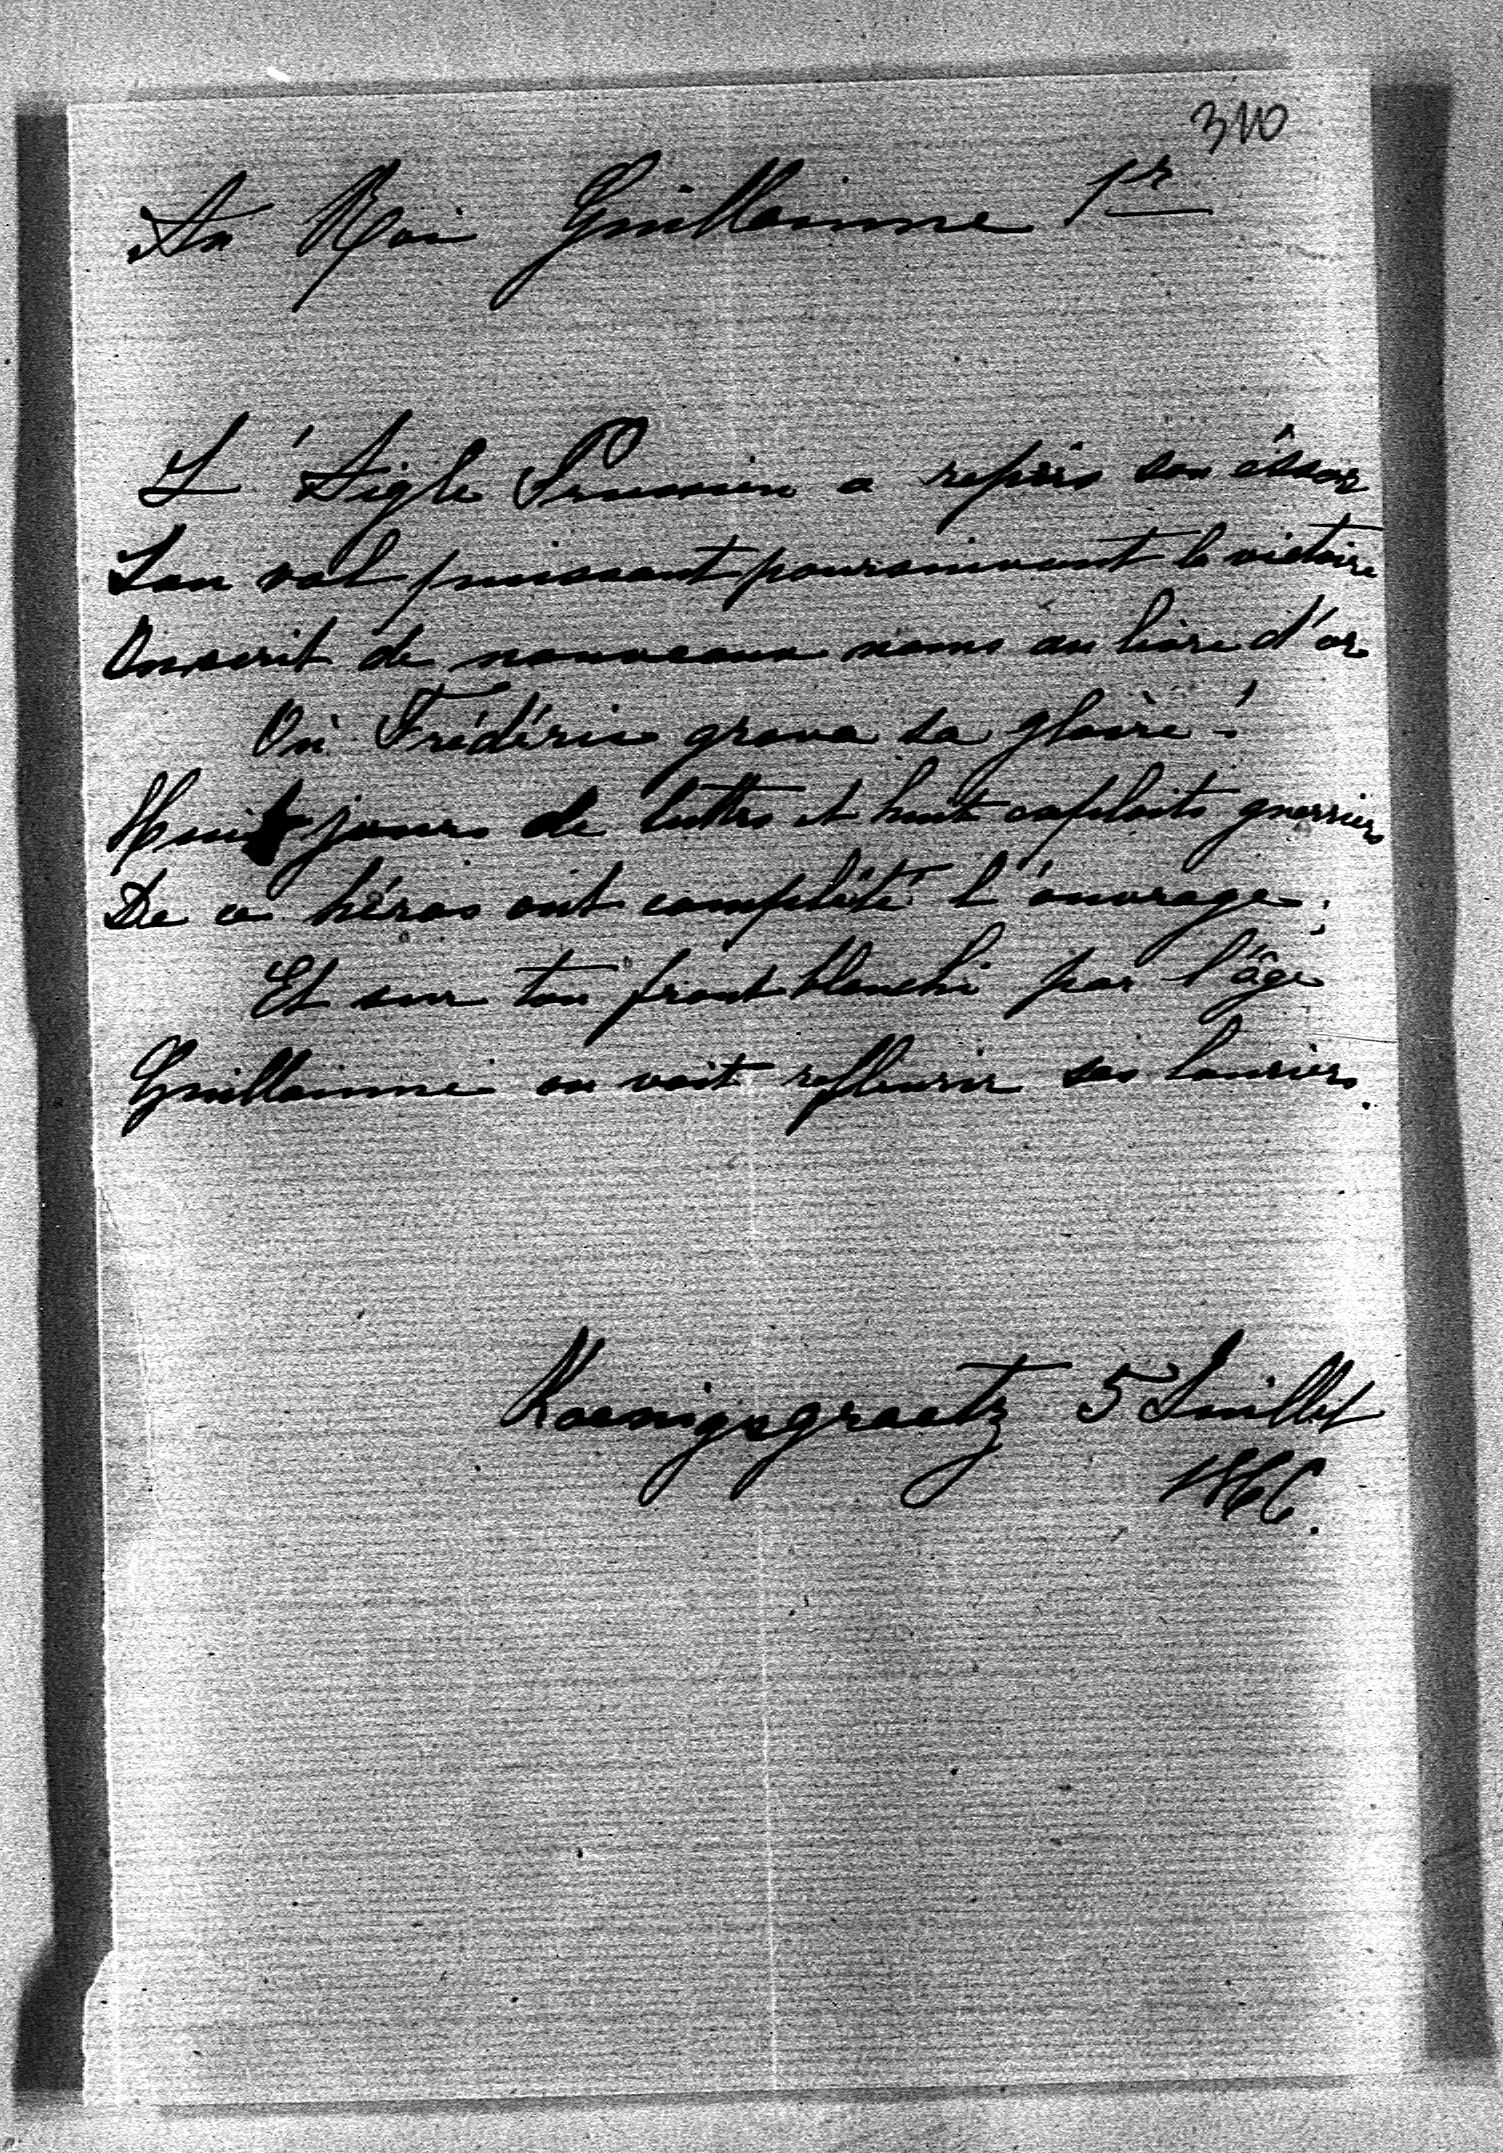 310
Au Roi Guillaume 1r
L'Aigle Prussien a repris son éssor
Son vol puissant poursuivant la victoire
Inscrit de nouveaux noms au livre d'or
Où Frédéric grava sa gloire !
Huit jours de luttes et huit exploits guerriers
De ce héros ont complété l'ouvrage ;
Et sur ton front blanchi par l'âge
Guillaume on voit refleurir ses lauriers.
Koenigsgraetz 5 Juillet
1866.